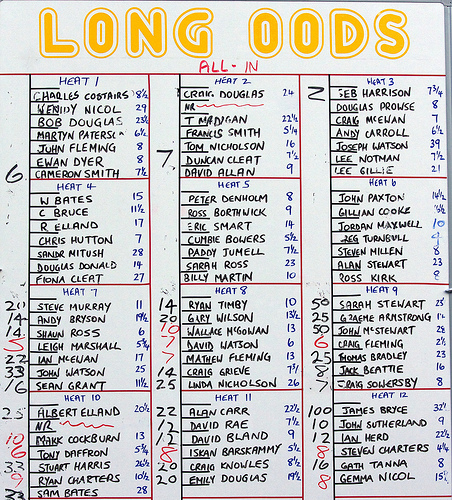 LONG ODDS
ALL-IN
HEAT 1
CHARLES COSTAIRS 8½
WENDY NICOL 29
BOB DOUGLAS 23½
MARTYN 6½
JOHN FLEMING 8
EWAN DYER 8
6 CAMERON SMITH 7½
HEAT 2
CRAIG DOUGLAS 24
NR
T MADIGAN 22½
FRANCIS SMITH 5¼
TOM NICHOLSON 16
7 DUNCAN CLEAT 7½
DAVID ALLAN 9
HEAT 3
2 SEB HARRISON 7¾
DOUGLAS PROWSE 8
CRAIG McEWAN 7
ANDY CARROLL 6½
JOSEPH WATSON 39
LEE NOTMAN 7½
LEE GILLIE 21
HEAT 4
W BATES 15
C BRUCE 11½
R ELLAND 17
CHRIS HUTTON 7
SANDR MITUSH 28
DOUGLAS DONALD 14
FIONA CLEAT 27
HEAT 5
PETER DENHOLM 8
ROSS BORTHWICK 9
ERIC SMART 14
CUMBIE BOWERS 5½
PADDY JUMELL 7½
SARAH ROSS 23
BILLY MARTIN 10
HEAT 6
JOHN PAXTON 14½
GILLIAN COOKE
JORDAN MAXWELL 10
GREG TURNBULL
STEVEN MILLEN 8
ALAN STEWART 23
ROSS KIRK 8
HEAT 7
20 STEVE MURRAY 11
14 ANDY BRYSON 19½
14 SHAUN ROSS 6
5 LEIGH MARSHALL 5¾
22 IAN McEWAN 17
33 JOHN WATSON 25
16 SEAN GRANT 11½
HEAT 8
14 RYAN TIMBY 10
20 GARY WILSON 13½
10 WALLACE McGOWAN 13
7 DAVID WATSON 6
7 MATHEW FLEMING 13
14 CRAIG GRIEVE 7½
25 LINDA NICHOLSON 26
HEAT 9
50 SARAH STEWART 23
25 GRAEME ARMSTRONG
50 JOHN McSTEWART 28
6 CRAIG FLEMING 2½
25 THOMAS BRADLEY 23
8 JACK BEATTIE 16
7 CRAIG SOWERSBY 8
HEAT 10
25 ALBERT ELLAND 20½
NR
10 MARK COCKBURN 13
6 TONY DAFFRON 5¾
33 STUART HARRIS 26½
9 RYAN CHARTERS 10½
33 SAM BATES 28
HEAT 11
22 ALAN CARR 22½
12 DAVID RAE 7½
12 DAVID BLAND 9
8 ISKAN BARSKAMMY 5½
20 CRAIG KNOWLES 8½
20 EMILY DOUGLAS 19½
HEAT 12
100 JAMES BRYCE
10 JOHN SUTHERLAND 9
12 IAN HERD 22½
8 STEVEN CHARTERS 4¼
16 GATH TANNA 8
8 GEMMA NICOL